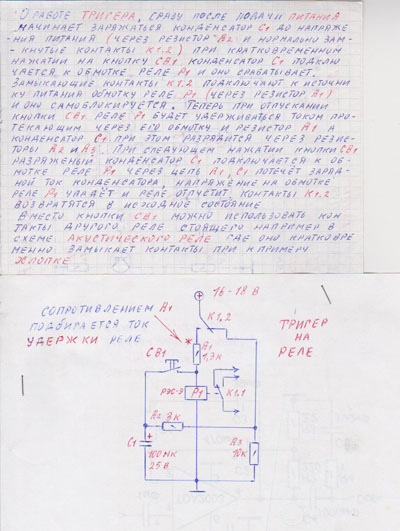 О РАБОТЕ ТРИГЕРА, СРАЗУ ПОСЛЕ ПОДАЧИ ПИТАНИЯ
НАЧИНАЕТ ЗАРЯЖАТЬСЯ КОНДЕНСАТОР С1 ДО НАПРЯЖЕ-
НИЯ ПИТАНИЯ (ЧЕРЕЗ РЕЗИСТОР И НОРМАЛЬНО ЗАМ-
КНУТЫЕ КОНТАКТЫ К1.2) ПРИ КРАТКОВРЕМЕННОМ
НАЖАТИИ НА КНОПКУ СВ1 КОНДЕНСАТОР С1 ПОДКЛЮ
ЧАЕТСЯ К ОБМОТКЕ РЕЛЕ Р1 И ОНО СРАБАТЫВАЕТ.
ЗАМЫКАЮЩИЕ КОНТАКТЫ К1.2 ПОДКЛЮЧАЮТ К ИСТОЧНИ
КУ ПИТАНИЯ ОБМОТКУ РЕЛЕ Р1 (ЧЕРЕЗ РЕЗИСТОР R1)
И ОНО САМОБЛОКИРУЕТСЯ. ТЕПЕРЬ ПРИ ОТПУСКАНИИ
КНОПКИ СВ1 РЕЛЕ Р1 БУДЕТ УДЕРЖИВАТЬСЯ ТОКОМ ПРО-
ТЕКАЮЩИМ ЧЕРЕЗ ЕГО ОБМОТКУ И РЕЗИСТОР R1 А
КОНДЕНСАТОР С1 ПРИ ЭТОМ РАЗРЯДИТСЯ ЧЕРЕЗ РЕЗИС-
ТОРЫ R2 И R3. ПРИ СЛЕДУЮЩЕМ НАЖАТИИ КНОПКИ СВ1
РАЗРЯЖЕНЫЙ КОНДЕНСАТОР С1 ПОДКЛЮЧАЕТСЯ К ОБ-
МОТКЕ РЕЛЕ Р1 ЧЕРЕЗ ЦЕПЬ R1, С1 ПОТЕЧЁТ ЗАРЯД-
НОЙ ТОК КОНДЕНСАТОРА, НАПРЯЖЕНИЕ НА ОБМОТКЕ
РЕЛЕ Р1 УПАДЁТ И РЕЛЕ ОТПУСТИТ. КОНТАКТЫ К1.2
ВОЗВРАТЯТСЯ В ИСХОДНОЕ СОСТОЯНИЕ
ВМЕСТО КНОПКИ СВ1 МОЖНО ИСПОЛЬЗОВАТЬ КОН
ТАКТЫ ДРУГОГО РЕЛЕ СТОЯЩЕГО НАПРИМЕР В
СХЕМЕ АКУСТИЧЕСКОГО РЕЛЕ ГДЕ ОНО КРАТКОВРЕ
МЕННО ЗАМЫКАЕТ КОНТАКТЫ ПРИ К ПРИМЕРУ
ХЛОПКЕ
16-18 В
СОПРОТИВЛЕНИЕМ R1
ПОДБИРАЕТСЯ ТОК
УДЕРЖКИ РЕЛЕ
К1,2
ТРИГЕР
НА
РЕЛЕ
*
R1
1,3К
СВ1
РЭС-9
Р1
К1.1
R2 3К
С1
+
100 МК
25 В
R3
10К